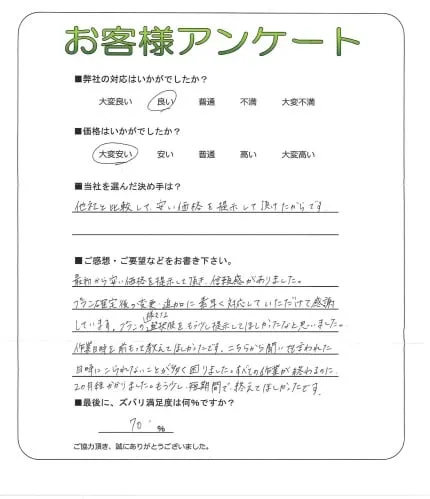 お客様アンケート
■弊社の対応はいかがでしたか？
大変良い 良い 普通 不満 大変不満
■価格はいかがでしたか？
大変安い 安い 普通 高い 大変高い
■当社を選んだ決め手は？
他社と比較して、安い価格を提示して頂けたからです
■ご感想・ご要望などをお書き下さい。
最初から安い価格を提示して頂き、信頼感がありました。
プラン確定後の変更・追加に素早く対応していただけて感謝
しています。プランの選択肢をもう少し提示してほしかったなと思いました。
作業日時を前もって教えてほしかったです。こちらから聞い
日時にこられないことが多く困りました。すべての作業が終わるのに、
2カ月程かかりました。もう少し、短期間で、終えてほしかったです。
■最後に、ズバリ満足度は何％ですか？
70 %
ご協力頂き、誠にありがとうございました。